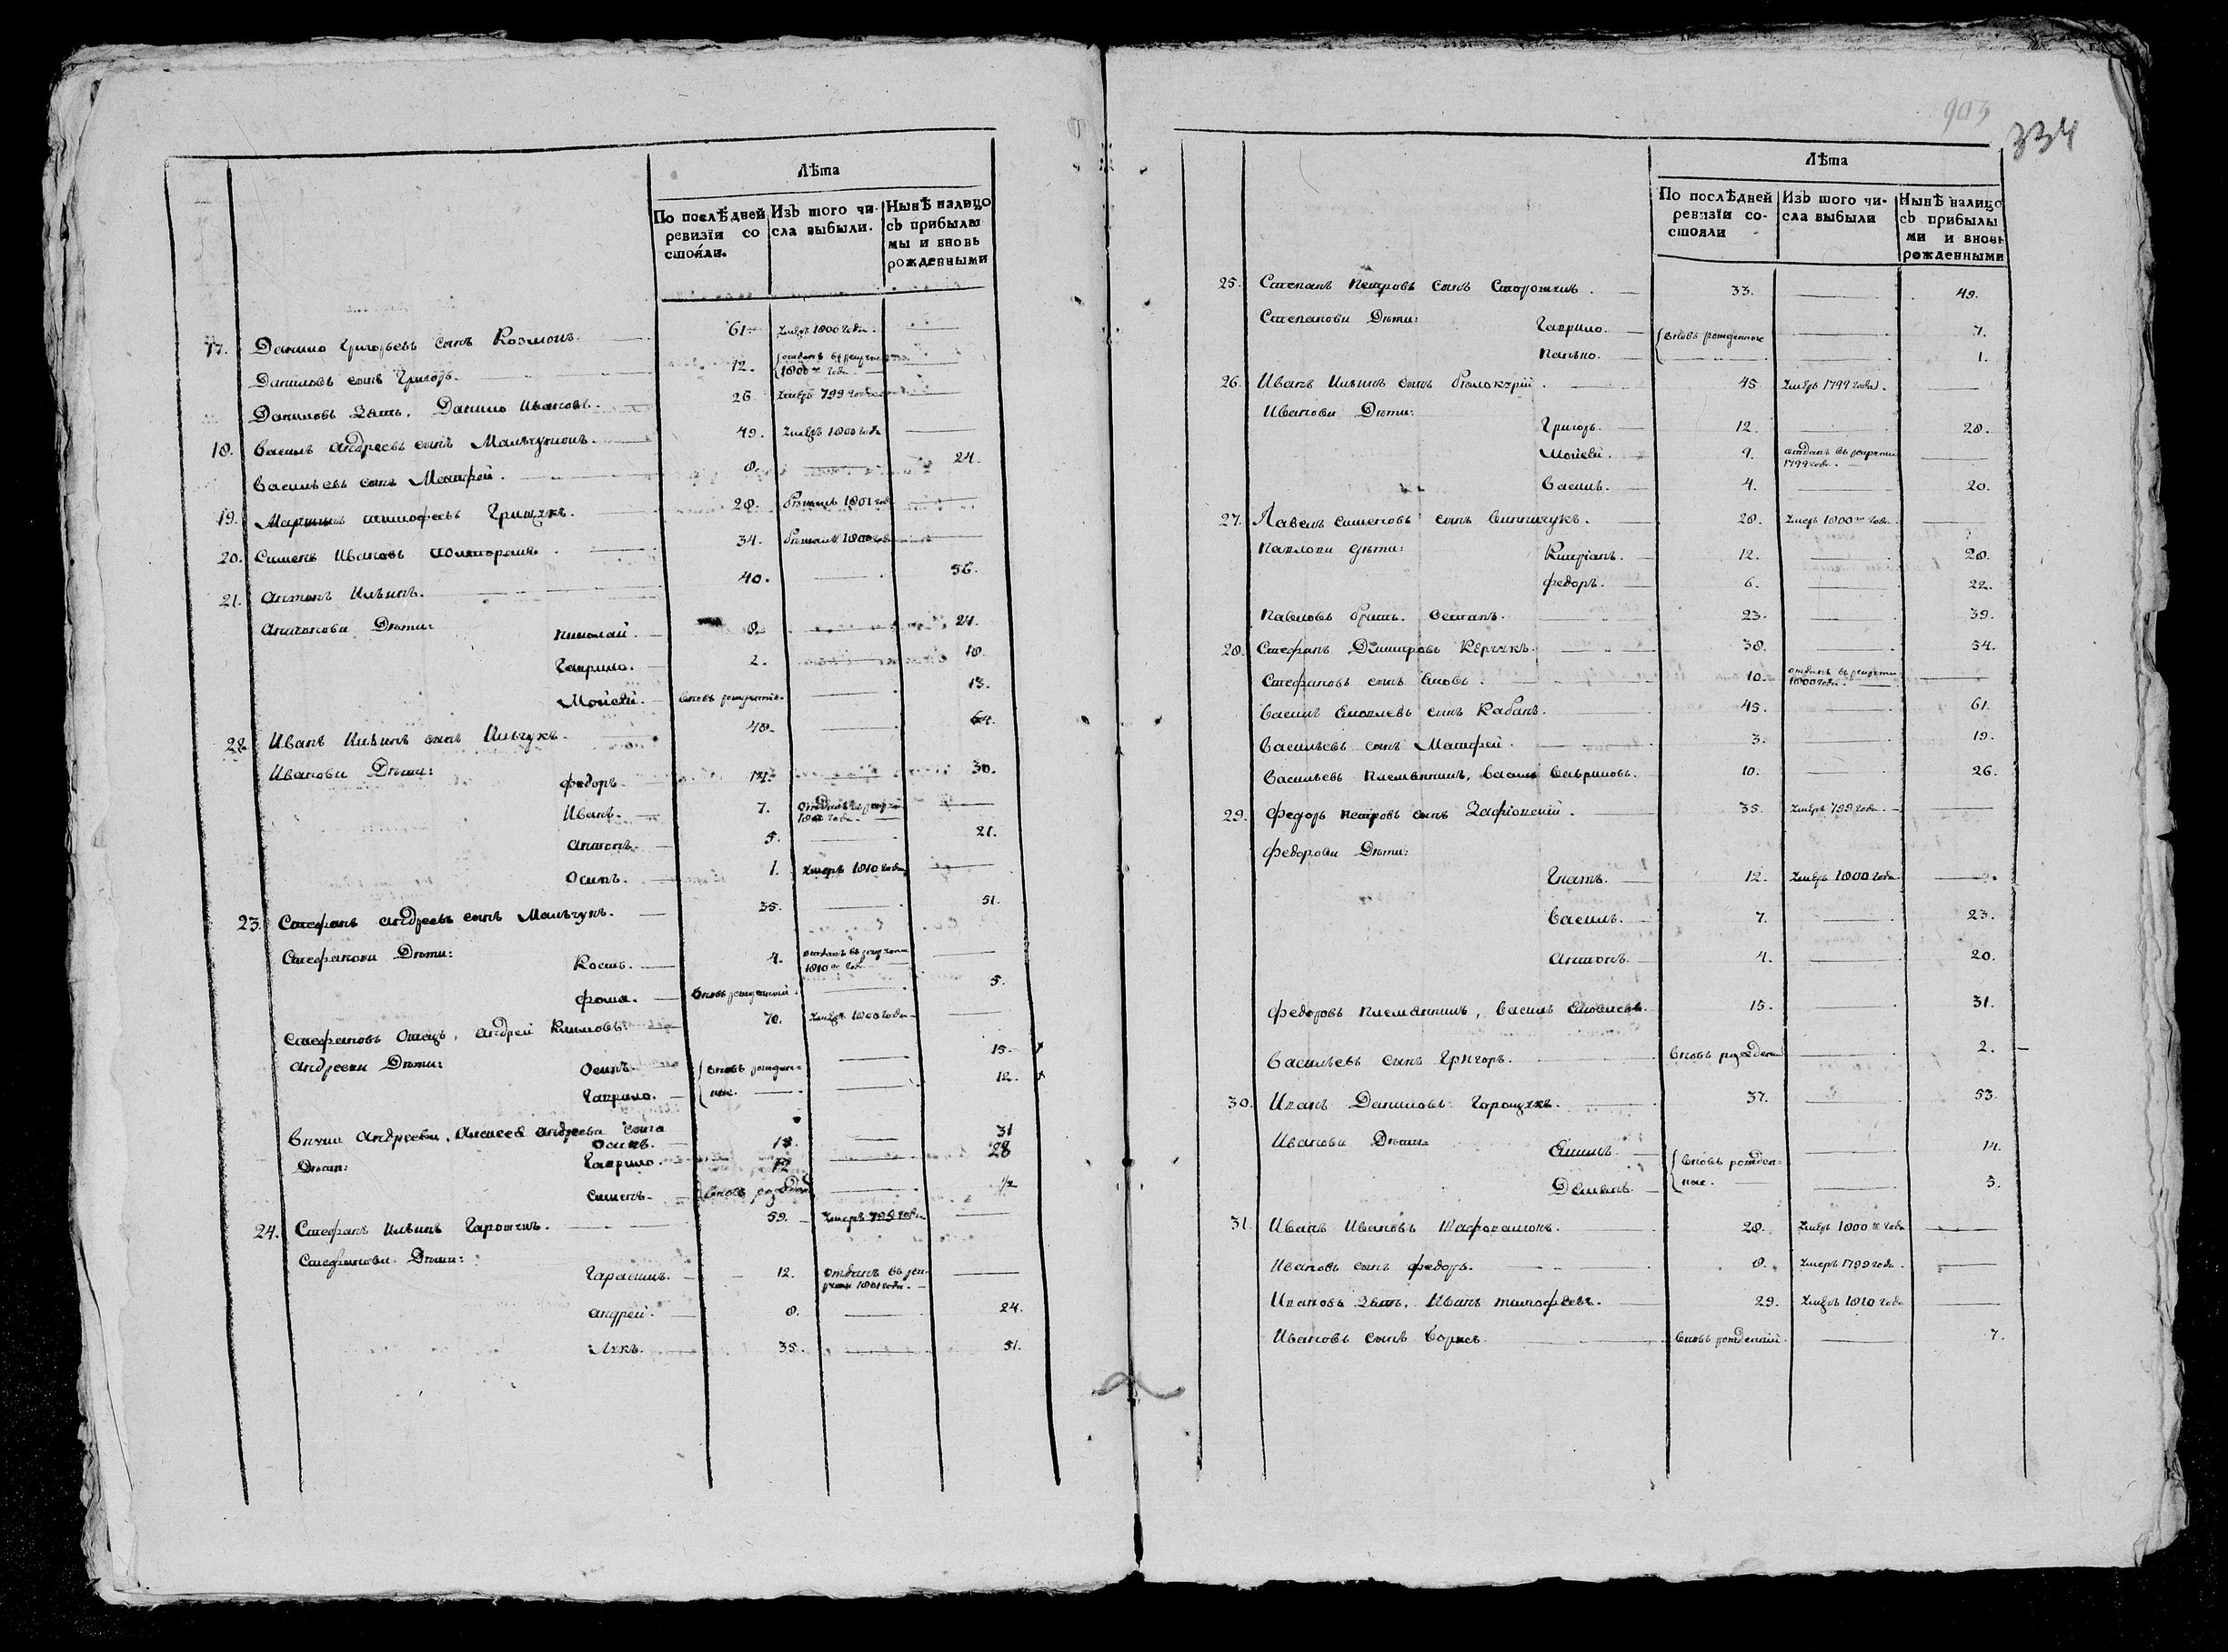 Лѣта
По послѣдней ревизїи со стояли.
Изъ того чи- сла выбыли.
Нынѣ налицо съ прибылы мы и вновь рожденными
17. Данило Григорьевъ сынъ 61. умеръ 1800 года.
Даниловъ сынъ Григорь. 12. отданъ въ рекруты 1800 года
Даниловъ Зять, Данило Ивановъ. 26 умеръ 799 года
18. Василь Андреевъ сынъ 49. умеръ 1800 года
Васильевъ сынъ Матфей. 8. 24.
19. Тимофеевъ Грищукъ. 28. 1801 года
20. Сименъ Ивановъ 34. 1800 года
21. Антонъ Ильинъ. 40. 56.
Антонови Дѣти: Николай. 8. 24.
Гаврило. 2. 18.
Мойсей. вновь рожденный. 13.
22. Иванъ Ильинъ сынъ Ильчукъ. 48. 64.
Иванови Дѣти: Федоръ. 14. 30.
Иванъ. 7. отданъ въ рекруты года.
Антонъ. 5. 21.
Осипъ. 1. умеръ 1810 года
23. Стефанъ Андреевъ сынъ Мальчукъ. 35. 51.
Стефанови Дѣти: Костъ. 4. отданъ въ рекруты 1810 года
Фома. вновь рожденный. 5.
Стефановъ Отецъ, Андрей Климовъ 70. умеръ 1800 года
Андрееви Дѣти: Осипъ. вновь рожден= 15.
Гаврило. ные. 12.
Внуки Андрееви, Алексея Андреева сына
Осипъ. 15. 31
Дѣти: Гаврило. 12 28
Сименъ. вновь 1/2
24. Стефанъ Ильинъ 59. умеръ 799 года
Стефанови Дѣти:
Гарасимъ. 12. отданъ въ рек- руты 1801 года.
Андрей. 8. 24.
Лукъ. 35. 51.
903
334
Лѣта
По послѣдней ревизїи со- стояли
Изъ того чи- сла выбыли
Нынѣ налицо съ прибылы ми и вновь рожденными
25. Степанъ Петровъ сынъ 33. 49.
Степанови Дѣти: Гаврило. вновь рожденные 7.
Панько. 1.
26. Иванъ Ильинъ сынъ 45 умеръ 1799 года.
Иванови Дѣти:
Григорь. 12. 28.
Мойсей. 9. отданъ въ рекруты 1799 года.
Василь. 4. 20.
27. Павелъ Сименовъ сынъ Винничукъ. 28. умеръ 1800 года
Павлови дѣти: Кипріанъ. 12. 28.
Федоръ. 6. 22.
Павловъ братъ. Остапъ. 23. 39.
28. Стефанъ Дмитровъ 38. 54.
Стефановъ сынъ 10. отданъ въ рекруты 1800 года.
Василь сынъ Кабанъ. 45. 61.
Васильевъ сынъ Матфей. 3. 19.
Васильевъ Племянникъ, Василь Гавриловъ. 10. 26.
29. Федоръ Петровъ сынъ 35. умеръ 799 года.
Федорови Дѣти:
Гнатъ. 12. умеръ 1800 года
Василь. 7. 23.
Антонъ. 4. 20.
Федоровъ Племянникъ, Василь 15. 31.
Васильевъ сынъ Григорь. вновь рожденный 2.
30. Иванъ Даниловъ 37. 53.
Иванови Дѣти:
вновь рожден= 14.
Демянъ. ные. 3.
31. Иванъ Ивановъ 28. умеръ 1800 года
Ивановъ сынъ Федоръ. 8. умеръ 1799 года.
Ивановъ Зять, Иванъ Тимофеевъ. 29. умеръ 1810 года
Ивановъ сынъ Борисъ. вновь рожденній. 7.